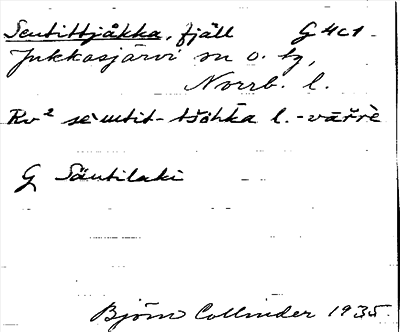 Seutittjåkka, fjäll G 4c1.
Jukkasjärvi sn o. tg,
Norrb. l.
Rv² seutit-tšohka l. -vārrè
G Säutilaki
Björn Collinder 1935.